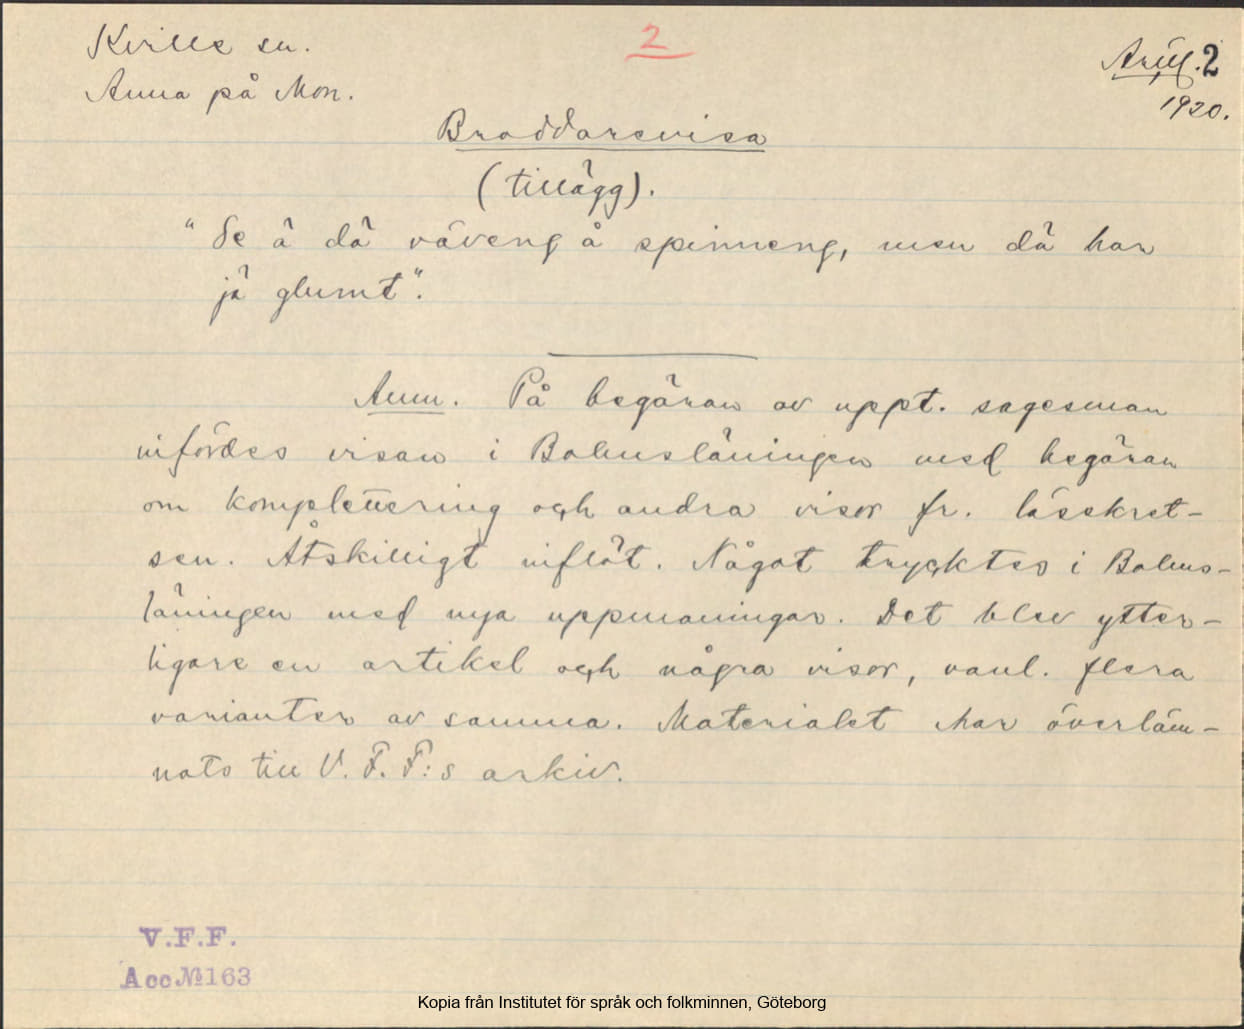 Kville sn.
2
Anna på Mon.
2
1920.
Broddaresvisa
(tillägg).
"De ä dä väveng å spinneng, men dä har
jä glumt".
Anm. På begäran av uppt. sagesman
infördes visan i Bohusläningen med begäran
om komplettering och andra visor fr. läsekret-
sen. Åtskilligt inflöt. Något trycktes i Bohus-
läningen med nya uppmaningar. Det blev ytter-
ligare en artikel och några visor, vanl. flera
varianter av samma. Materialet har överläm-
nats till V. F. F:s arkiv.
V.F.F.
Acc №163
Kopia från Institutet för språk och folkminnen, Göteborg